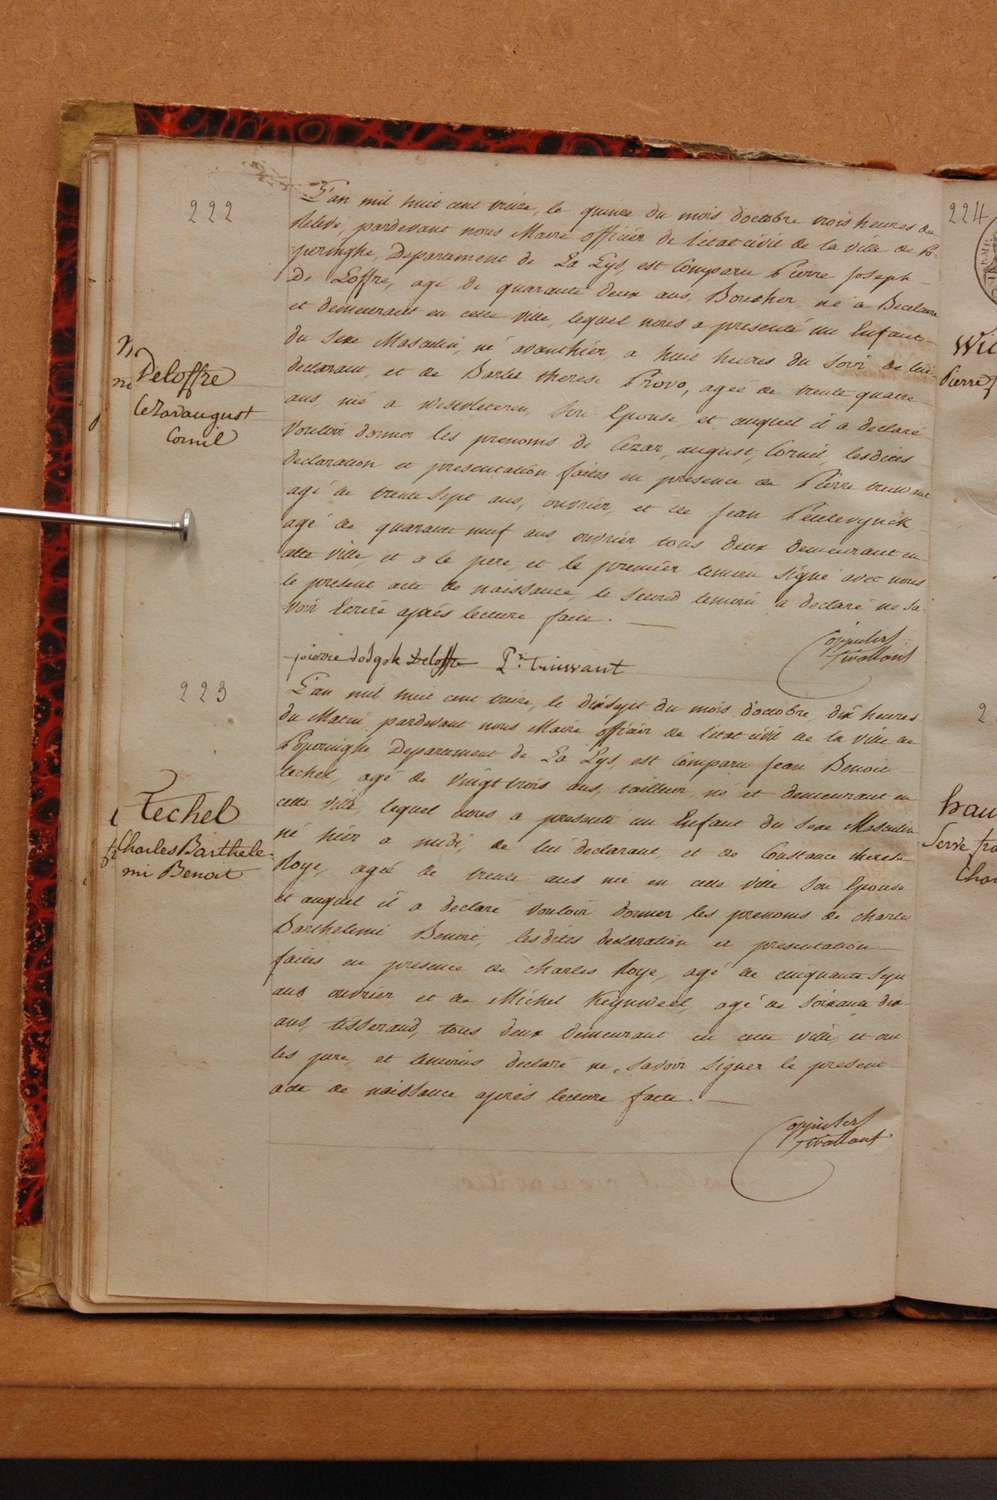 222
L'an mil huit cent treize, le quinze du mois d'octobre trois heures de
relevé, pardevant nous Maire officier de l'état civil de la ville de Po-
peringhe, Departement de La Lys, est Comparu Pierre Joseph
De Loffre, agé de quarante deux ans, Boucher, né a Becelaere
et demeurant en cette ville, lequel nous a presenté un Enfant
du Sexe Masculin, né avanthier, a huit heures du Soir de lui
declarant, et de Barbe therese Provo, agée de trente quatre
ans née a Son Epouse et auquel il a declaré
Vouloir donner les prenoms de Cezar, august, Cornil, lesdites
declaration et presentation faites en presence de Pierre
agé de trente Sept ans, ouvrier et de Jean
agé de quarante neuf ans ouvrier tous deux demeurant en
cette ville, et a le pere, et le premier temoin Signé avec nous
le present acte de naissance, le Second temoin a declaré ne Sa-
voir Ecrire après lecture faite.
Deloffre
Cezar august
Cornil
pierre Deloffre Pr. Truwant
223
L'an mil huit cent treize, le dixsept du mois d'octobre dix heures
du Matin pardevant nous Maire officier de l'état civil de la ville de
Poperinghe Departement de La Lys, est Comparu Jean Benoit
techel, agé de vingt trois ans, tailleur, né et demeurant en
cette ville, lequel nous a presenté un Enfant du Sexe Masculin
né hier a midi, de lui declarant, et de Constance therese
Roye, agée de trente ans née en cette ville Son Epouse
et auquel il a declaré Vouloir donner les prenoms de charles
Barthelemi Benoit, lesdites declaration et presentation
faites en presence de charles Roye, agé de cinquante Sept
ans ouvrier et de Michel agé de Soixante dix
ans, tisserand, tous deux demeurant en cette ville, et ont
les pere, et temoins declaré ne Savoir Signer le present
acte de naissance après lecture faite.
Techel
Charles Barthele-
mi Benoit
224
Pierre